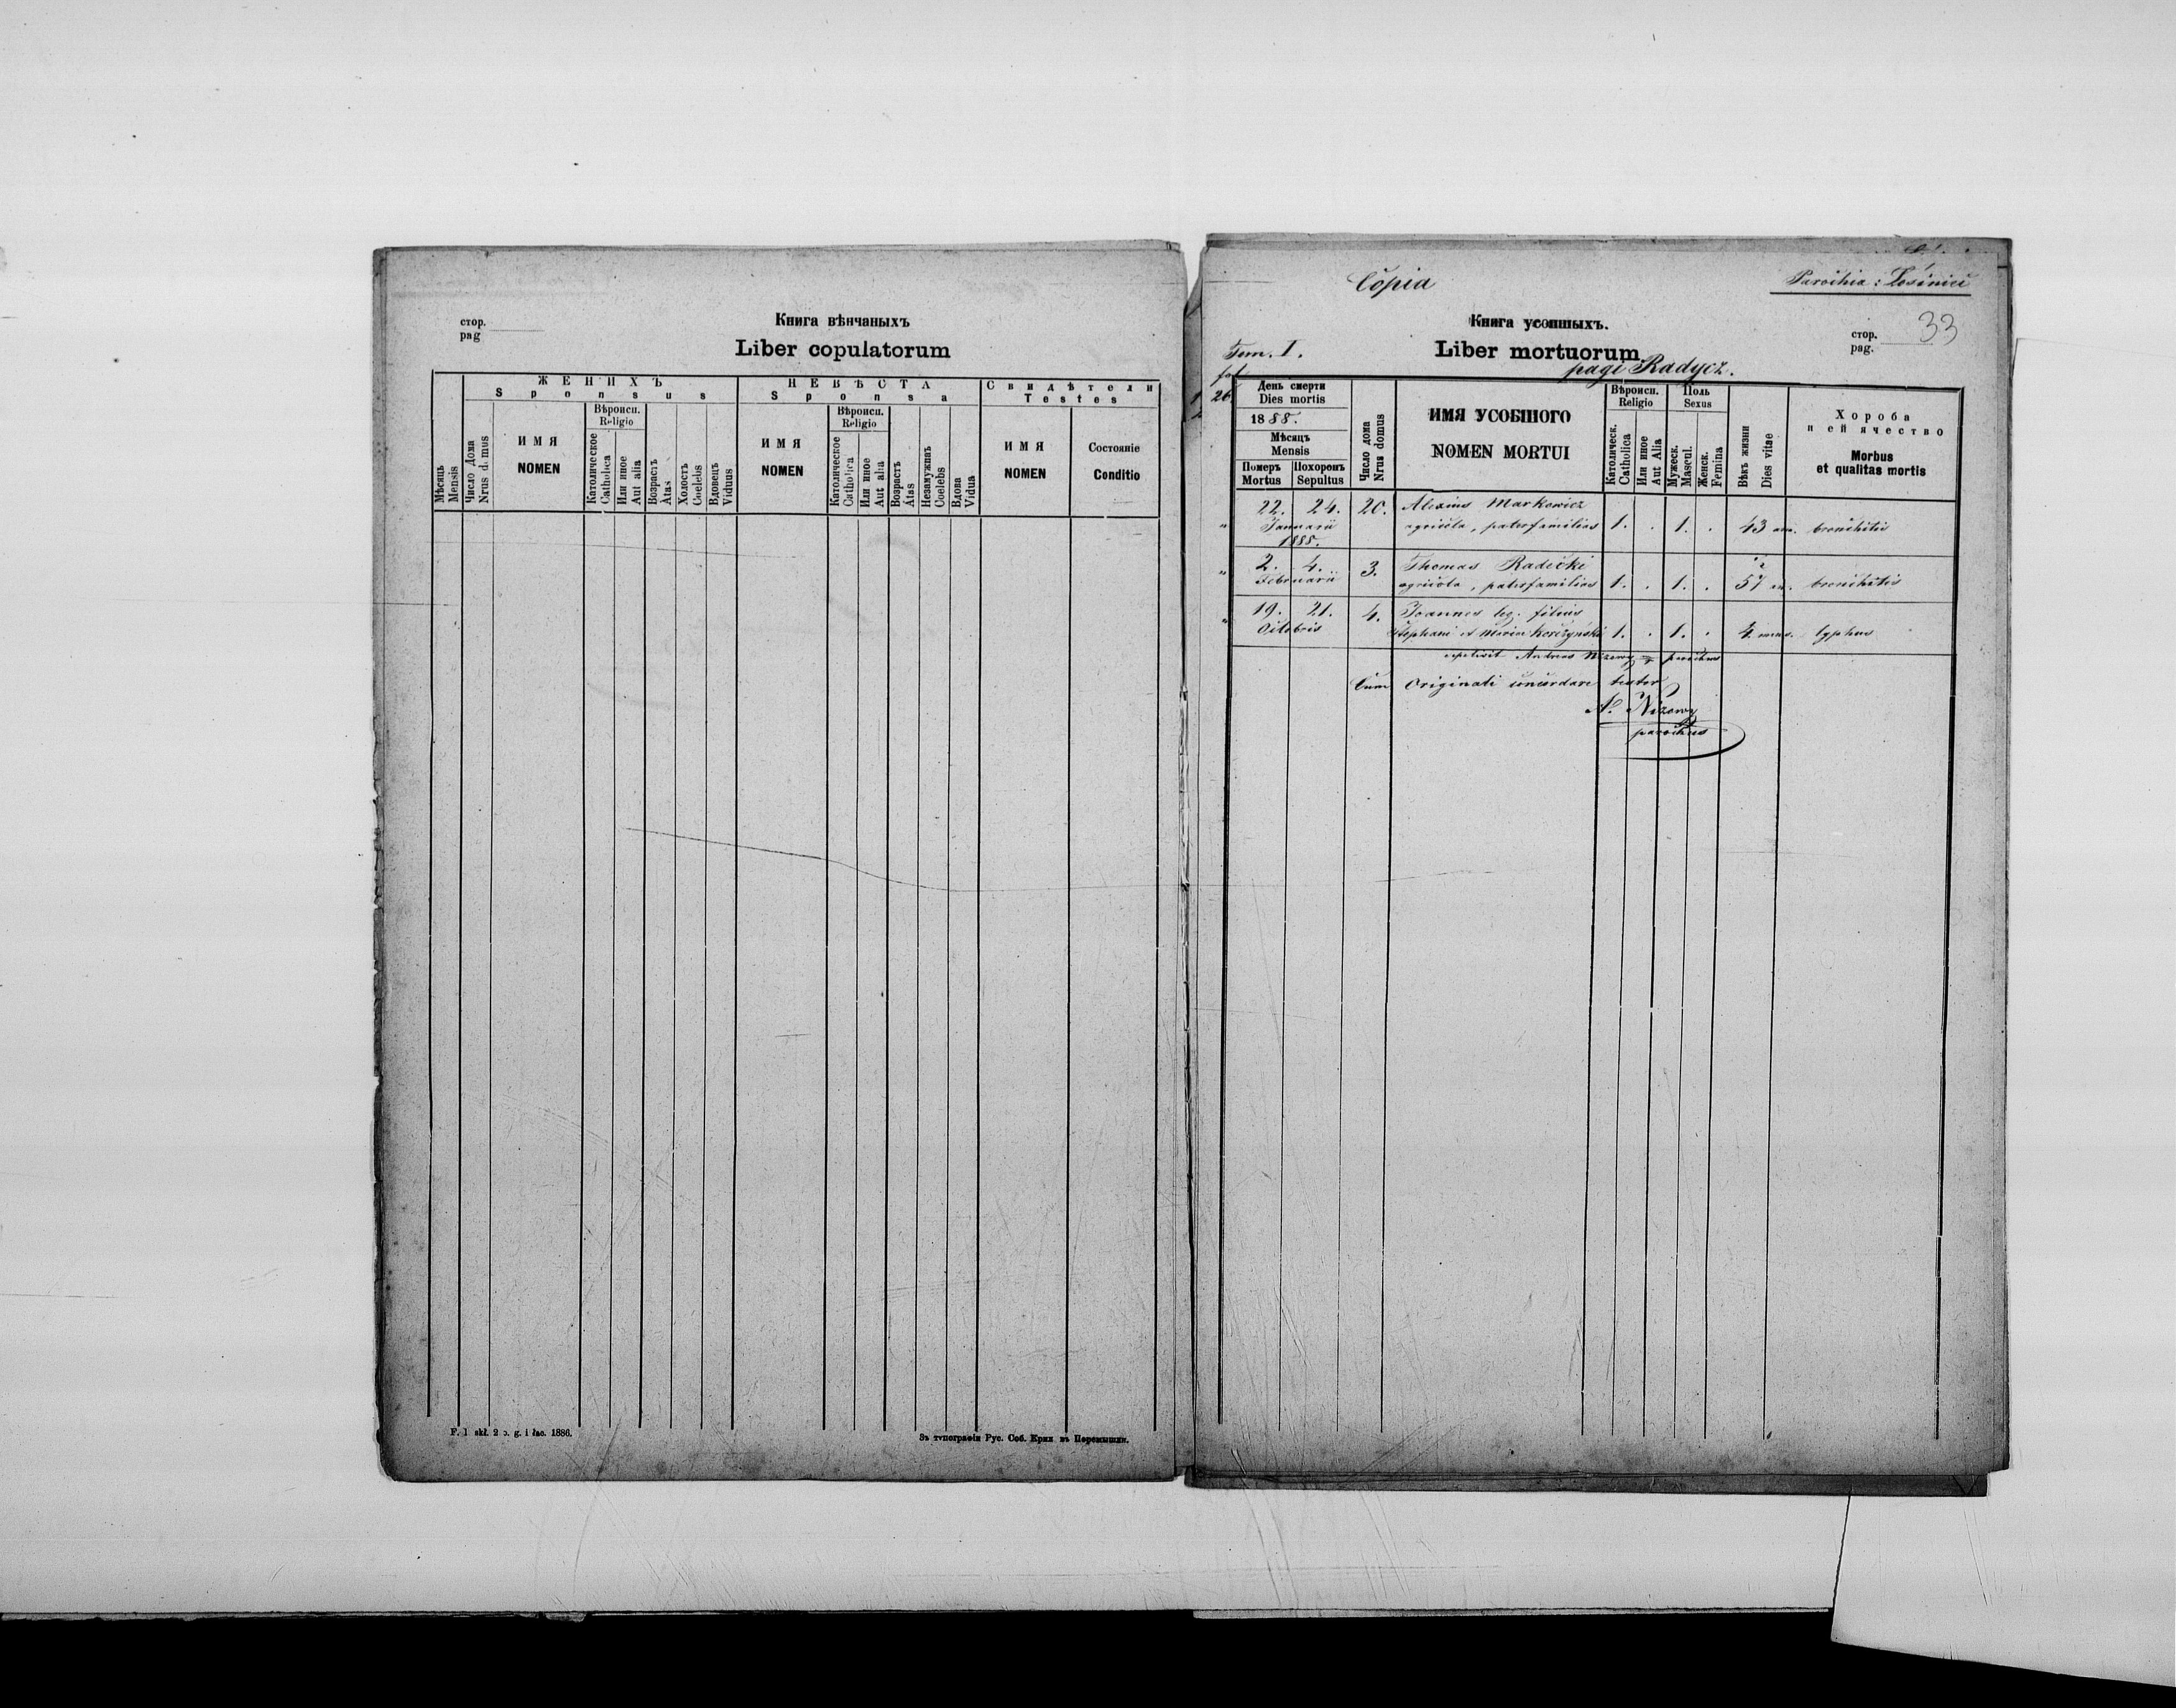 стор.
pag
Книга вѣнчаныхъ
Liber copulatorum
Мѣсяцъ
Mensis
ЖЕНИХЪ
Sponsus
Число Дома
Nrus d. mus
ИМЯ
NOMEN
Вѣроисп.
Religio
Католическое
Catholica
Или иное
Aut alia
Возрастъ
Átas
Холостъ
Coelebs
Вдовецъ
Viduus
НЕВѢСТА
Sponsa
ИМЯ
NOMEN
Вѣроисп.
Religio
Католическое
Catholica
Или иное
Aut alia
Возрастъ
Átas
Незамужнъ
Coelebs
Вдова
Vidua
Свидѣтели
Testes
ИМЯ
NOMEN
Состояніе
Conditio
F. 1 skł. 2 o. g. i łac. 1886.
Зъ типографіи Рус. Соб. Крил. въ Перемышли.
Copia
Parochia: Losinici
Книга усопшыхъ.
стор.
pag. 33
Liber mortuorum
pagi Radycz.
Tom. I.
fol
26
День смерти
Dies mortis
1888.
Мѣсяцъ
Mensis
Померъ
Mortus
Похоронъ
Sepultus
Число дома
Nrus domus
ИМЯ УСОБШОГО
NOMEN MORTUI
Вѣроисп.
Religio
Католическ.
Catholica
Или иное
Aut Alia
Поль
Sexus
Мужеск.
Mascul.
Женск.
Femina
Вѣкъ жизни
Dies vitae
Хороба
и ей ячество
Morbus
et qualitas mortis
22. 24. 20. Alexius Markowicz
" Januarii agricola, paterfamilias 1. . 1. . 43 an. bronchitis
1888.
2. 4. 3. Thomas Radecki
" Februarii agricola, paterfamilias 1. . 1. . 57 an. bronchitis
19. 21. 4. Joannes leg. filius
" Octobris Stephani et Maria Korczyński 1. . 1. . 4 mens. typhus
sepelivit Andreas Nizowy parochus
Cum Originali concordare testor
A. Nizowy
parochus